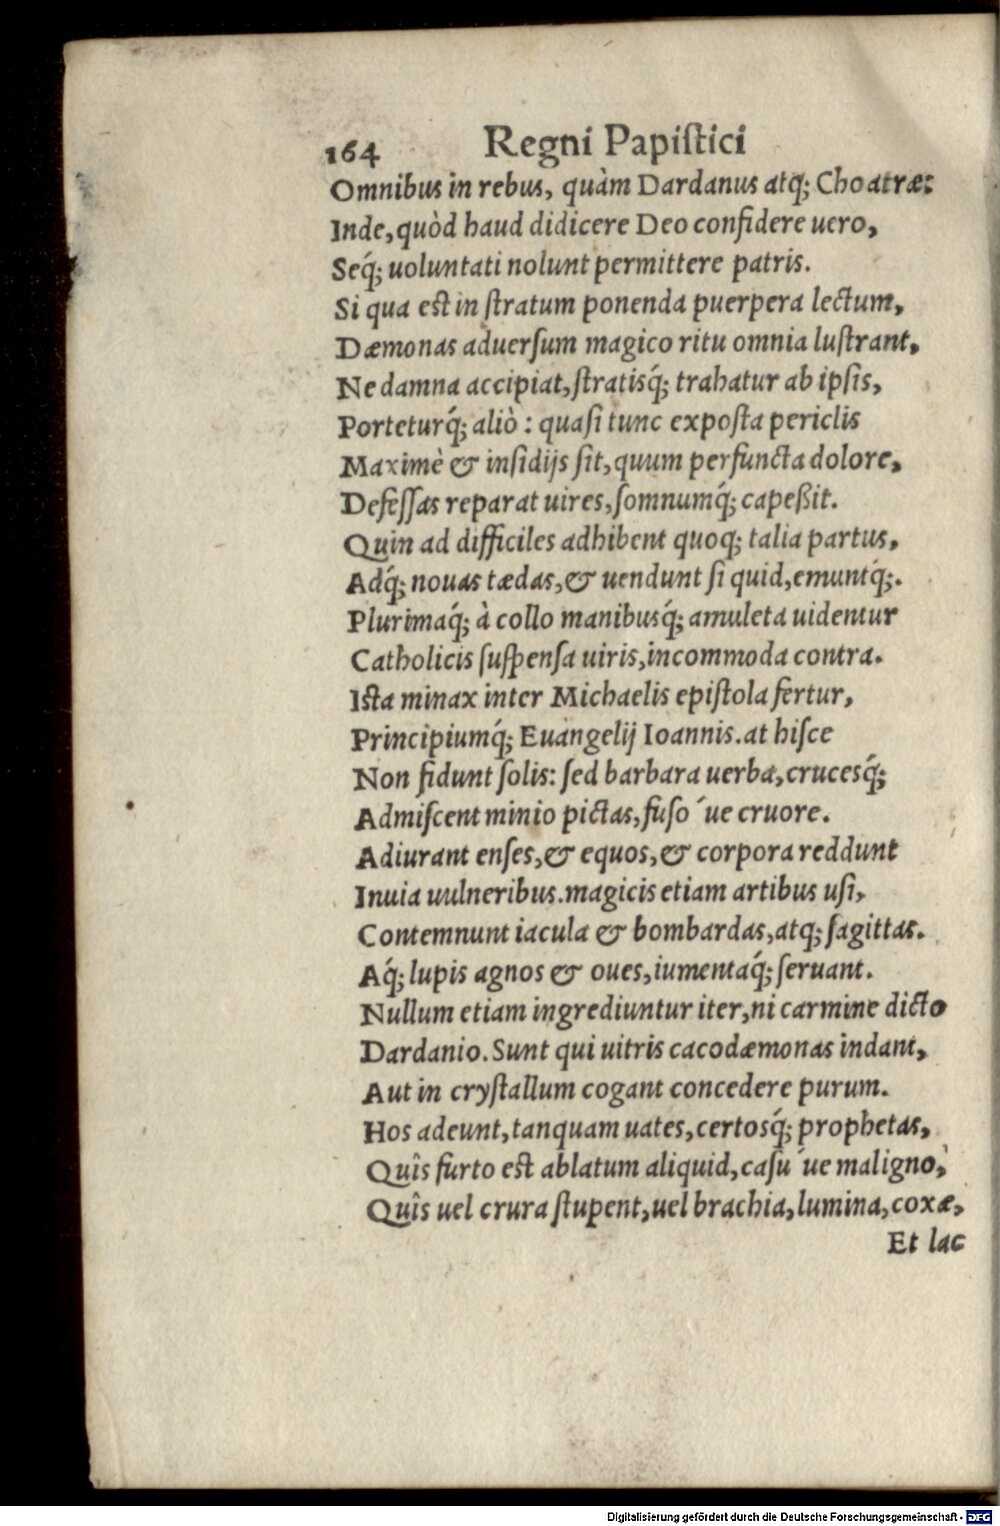 164 Regni Papiſtici
Omnibus in rebus, quàm Dardanus atq́; Choatræ:
Inde, quòd haud didicere Deo confidere uero,
Seq́; uoluntati nolunt permittere patris.
Si qua eſt in ſtratum ponenda puerpera lectum,
Dæmonas aduerſum magico ritu omnia luſtrant,
Ne damna accipiat, ſtratisq́; trahatur ab ipſis,
Porteturq́; aliò : quaſi tunc expoſta periclis
Maximè & inſidijs ſit, quum perfuncta dolore,
Defeſſas reparat uires, ſomnumq́; capeßit.
Quin ad difficiles adhibent quoq; talia partus,
Adq́; nouas tædas, & uendunt ſi quid, emuntq́;.
Plurimaq́; à collo manibusq́; amuleta uidentur
Catholicis ſuſpenſa uiris, incommoda contra.
Iſta minax inter Michaelis epiſtola fertur,
Principiumq́; Euangelij Ioannis. at hiſce
Non fidunt ſolis: ſed barbara uerba, crucesq́;
Admiſcent minio pictas, fuſo ́ue cruore.
Adiurant enſes, & equos, & corpora reddunt
Inuia uulneribus. magicis etiam artibus uſi,
Contemnunt iacula & bombardas, atq; ſagittas.
Aq́; lupis agnos & oues, iumentaq́; ſeruant.
Nullum etiam ingrediuntur iter, ni carmine dicto
Dardanio. Sunt qui uitris cacodæmonas indant,
Aut in cryſtallum cogant concedere purum.
Hos adeunt, tanquam uates, certosq́; prophetas,
Quîs furto eſt ablatum aliquid, caſu ́ue maligno,
Quîs uel crura ſtupent, uel brachia, lumina, coxæ,
Et lac
Digitalisierung gefördert durch die Deutsche Forschungsgemeinschaft - DFG